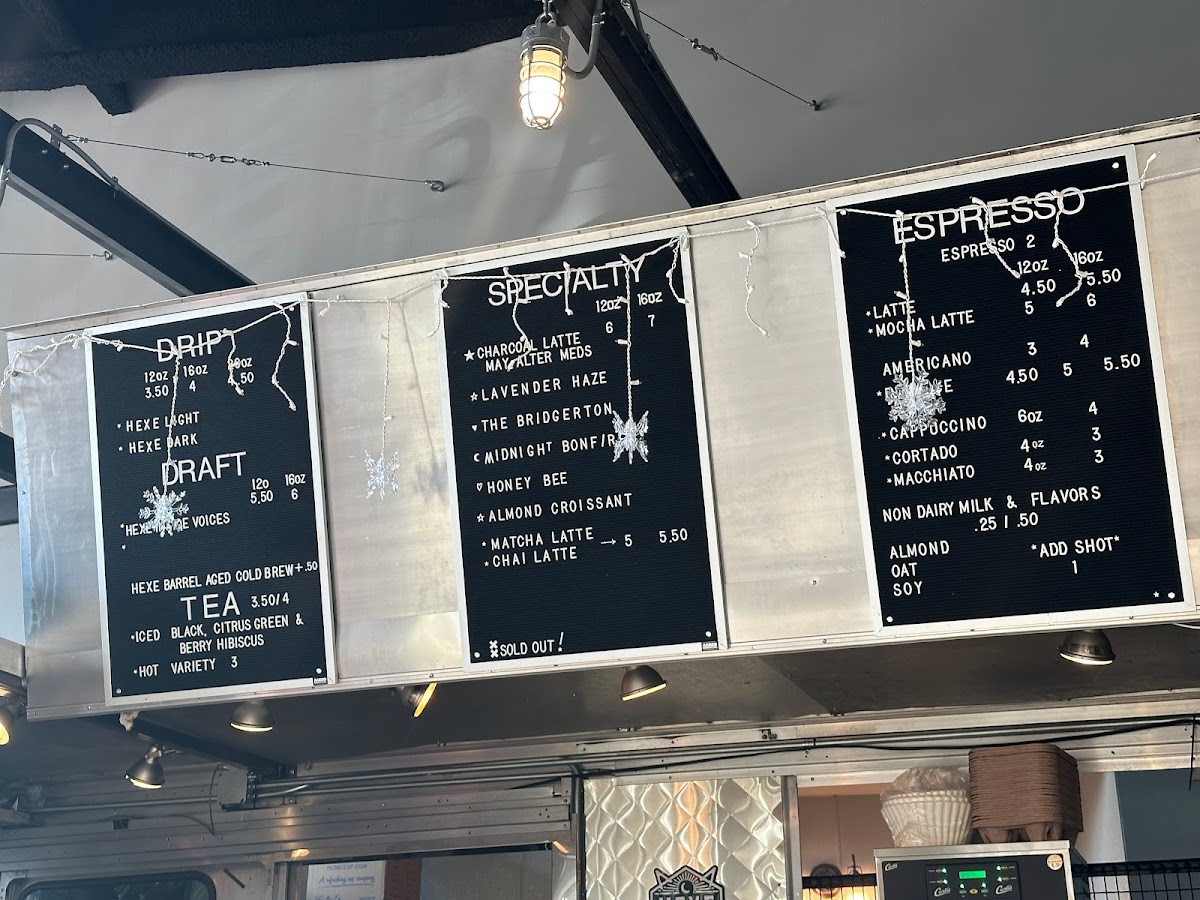 DRIP
12oz 16oz
3.50 4 .50
* HEXE LIGHT
* HEXE DARK
DRAFT
12o 16oz
5.50 6
VOICES
*
HEXE BARREL AGED COLD BREW +.50
TEA 3.50/4
*ICED BLACK, CITRUS GREEN &
BERRY HIBISCUS
*HOT VARIETY 3
SPECIALTY
12oz 16oz
6 7
★CHARCOAL LATTE
MAY ALTER MEDS
☆LAVENDER HAZE
♥THE BRIDGERTON
☾MIDNIGHT
♡HONEY BEE
☆ALMOND CROISSANT
*MATCHA LATTE → 5 5.50
*CHAI LATTE
SOLD OUT!
ESPRESSO
ESPRESSO 2
12oz 16oz
*LATTE 4.50 5.50
*MOCHA LATTE 5 6
AMERICANO 3 4
4.50 5 5.50
*CAPPUCCINO 6oz 4
*CORTADO 4oz 3
*MACCHIATO 4oz 3
NON DAIRY MILK & FLAVORS
.25 / .50
ALMOND *ADD SHOT*
OAT 1
SOY
Curtis
Curtis